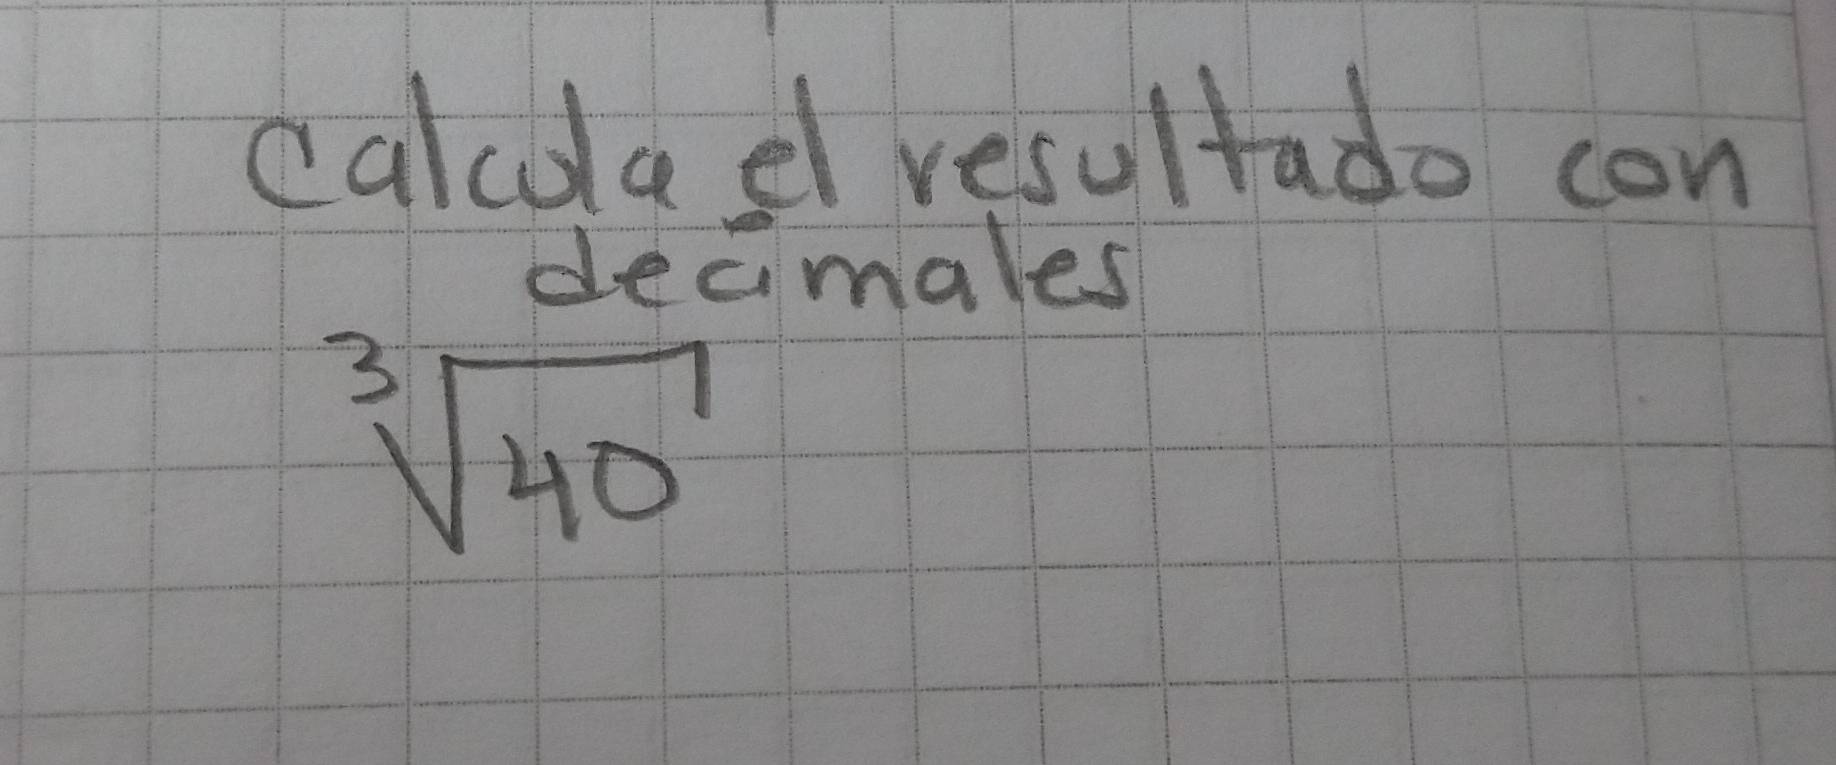 Calcula el resultado con
decimales
3√40